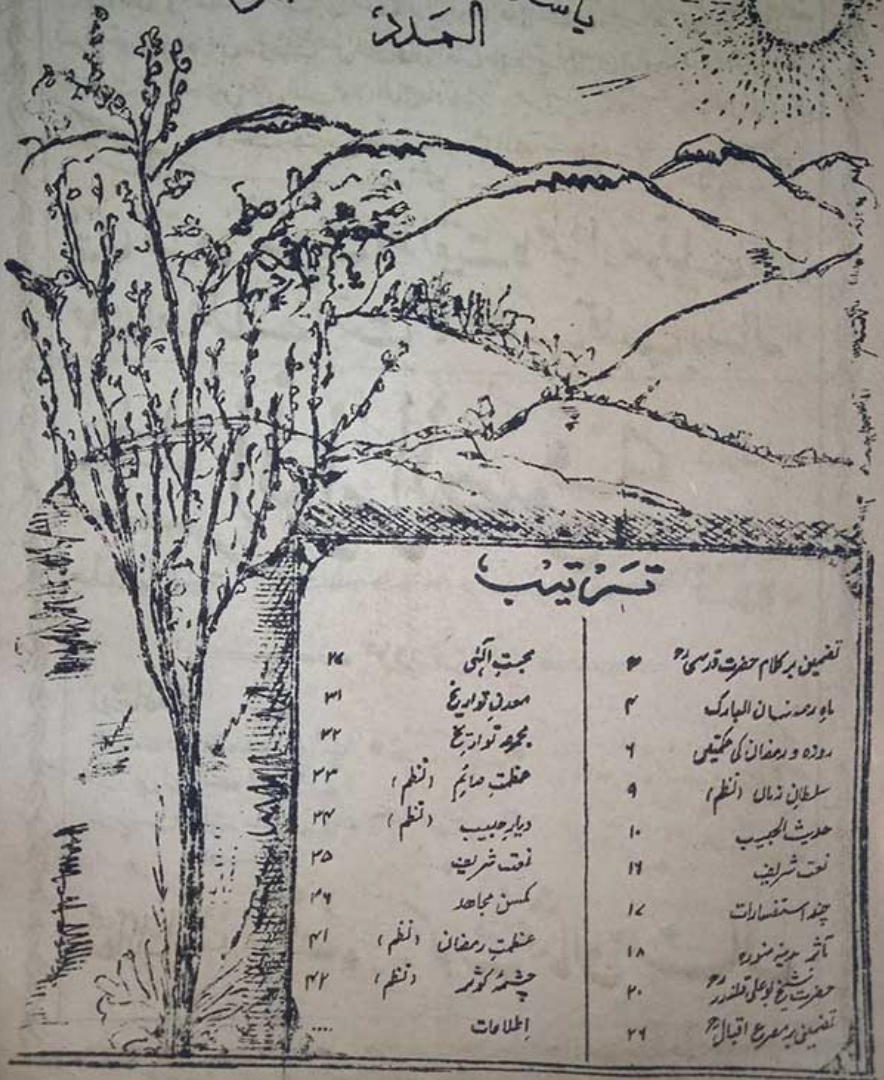 المَدَد
ترتیب
تضمین بر کلام حضرت قدسیؒ ۳
ماہِ رمضان المبارک ۴
روزہ و رمضان کی حکمتیں ۶
سلطانِ زماں (نظم) ۹
حدیث الحبیب ۱۰
نعت شریف ۱۶
چند استفسارات ۱۷
تاثر مدینہ منورہ ۱۸
حضرت شیخ بوعلی قلندرؒ ۲۰
تضمین بر مصرع اقبالؒ ۲۶
محبتِ الٰہی
معدنِ تواریخ ۳۱
مجموعہ تواریخ ۳۲
عظمتِ صائم (نظم) ۳۳
دیارِ حبیب (نظم) ۳۴
نعت شریف ۳۵
کمسن مجاہد ۳۶
عظمتِ رمضان (نظم) ۴۱
چشمۂ کوثر (نظم) ۴۲
اطلاعات ....